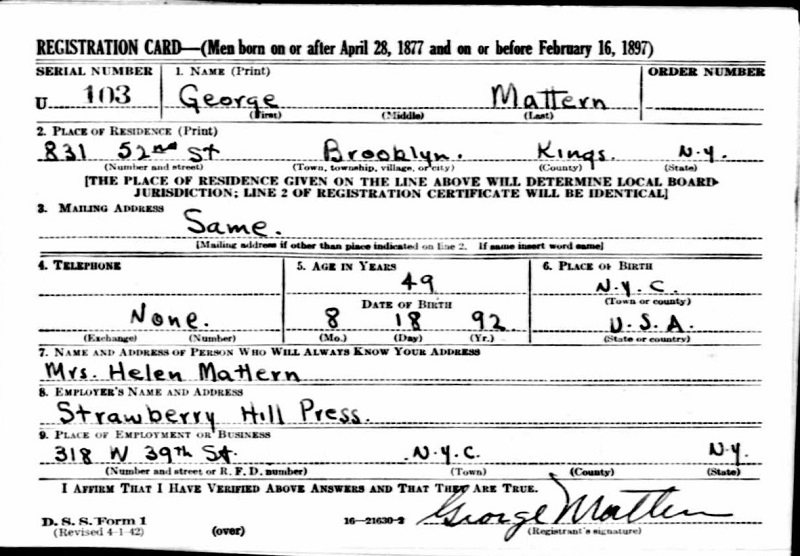 REGISTRATION CARD—(Men born on or after April 28, 1877 and on or before February 16, 1897)
SERIAL NUMBER 1. NAME (Print) ORDER NUMBER
U 103 George Mattern
(First) (Middle) (Last)
2. PLACE OF RESIDENCE (Print)
831 52nd St Brooklyn. Kings. N.Y.
(Number and street) (Town, township, village, or city) (County) (State)
[THE PLACE OF RESIDENCE GIVEN ON THE LINE ABOVE WILL DETERMINE LOCAL BOARD
JURISDICTION; LINE 2 OF REGISTRATION CERTIFICATE WILL BE IDENTICAL]
3. MAILING ADDRESS
Same.
[Mailing address if other than place indicated on line 2. If same insert word same]
4. TELEPHONE 5. AGE IN YEARS 6. PLACE OF BIRTH
49 N.Y.C.
DATE OF BIRTH (Town or county)
None. 8 18 92 U.S.A.
(Exchange) (Number) (Mo.) (Day) (Yr.) (State or country)
7. NAME AND ADDRESS OF PERSON WHO WILL ALWAYS KNOW YOUR ADDRESS
Mrs. Helen Mattern
8. EMPLOYER'S NAME AND ADDRESS
Strawberry Hill Press.
9. PLACE OF EMPLOYMENT OR BUSINESS
318 W 39th St. N.Y.C. N.Y.
(Number and street or R. F. D. number) (Town) (County) (State)
I AFFIRM THAT I HAVE VERIFIED ABOVE ANSWERS AND THAT THEY ARE TRUE.
George Mattern
D. S. S. Form 1 16—21630-2 (Registrant's signature)
(Revised 4-1-42) (over)